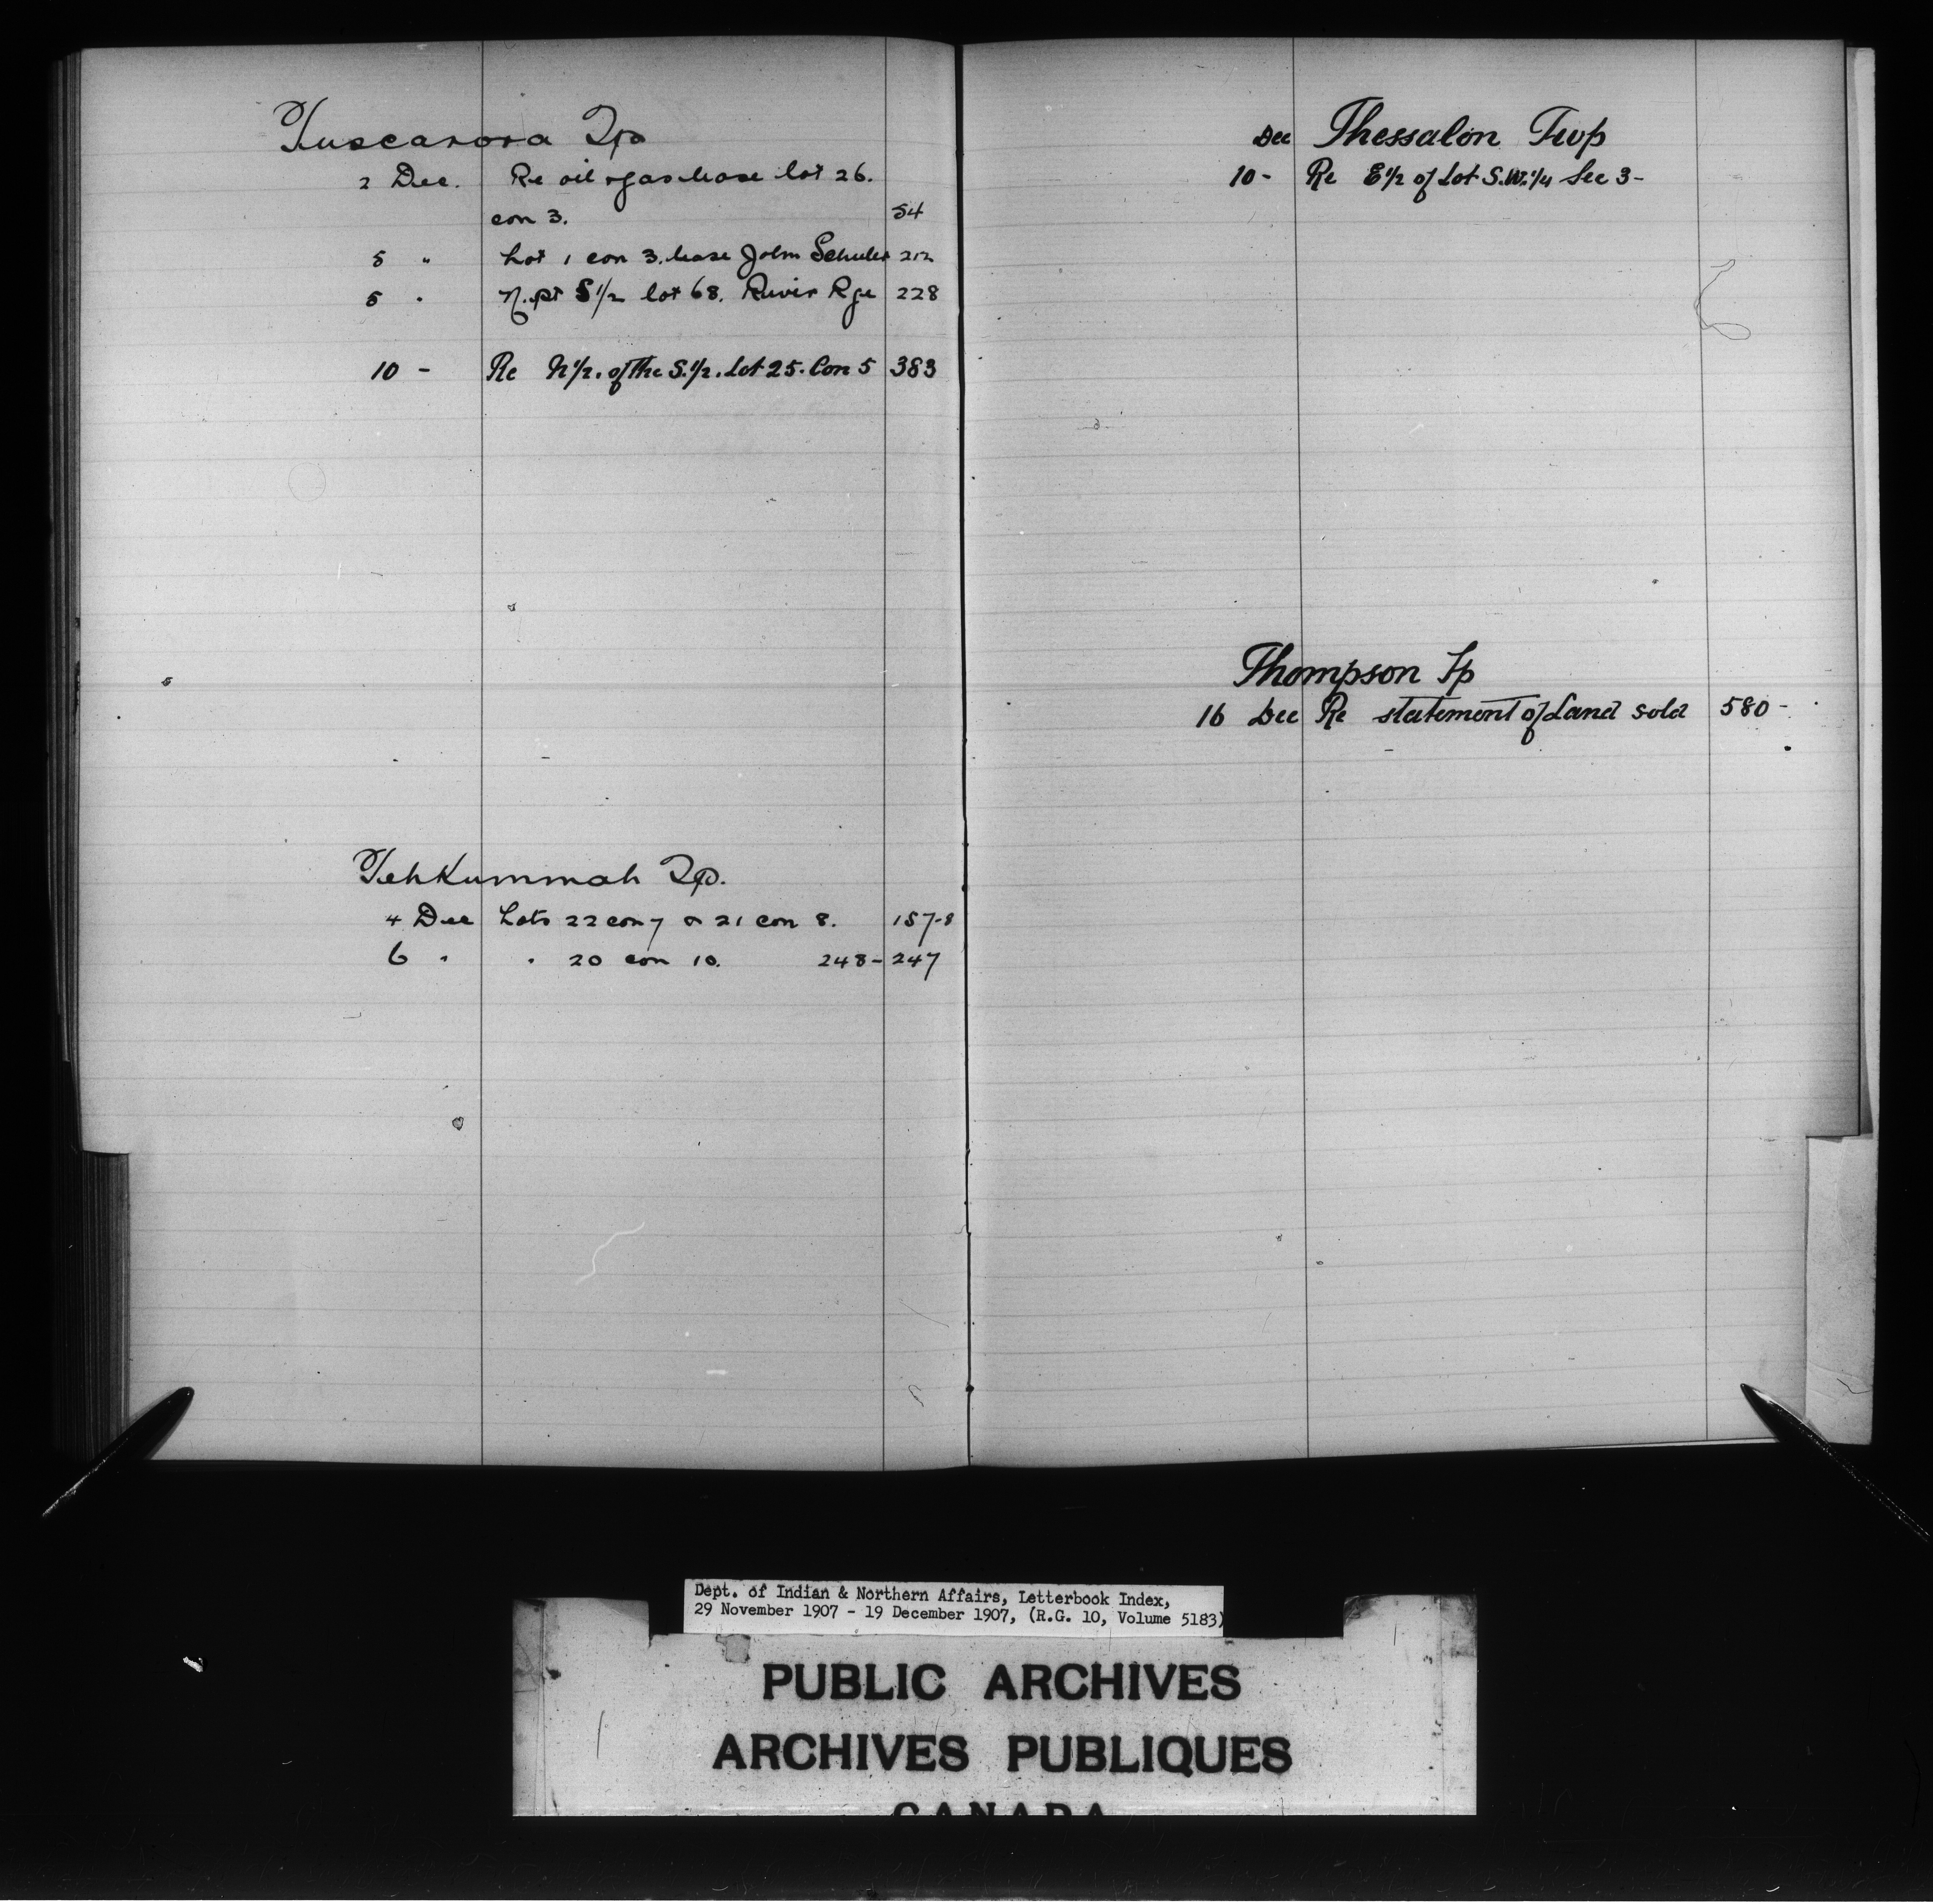 Tuscarora Tp
2 Dec. Re oil & gas lease lot 26.
con 3. 54
5 " Lot 1 con 3. lease John Schuler 212
5 " N. pt S 1/2 lot 68. River Rge 228
10 - Re N 1/2. of the S. 1/2. Lot 25. Con 5 383
Tehkummah Tp.
4 Dec Lots 22 con 7 & 21 con 8. 157-8
6 " " 20 con 10. 248-247
Dec Thessalon Twp
10- Re E 1/2 of Lot S.W. 1/4 Sec 3-
Thompson Tp
16 Dec Re statement of Land sold 580-
Dept. of Indian & Northern Affairs, Letterbook Index,
29 November 1907 - 19 December 1907, (R.G. 10, Volume 5183)
PUBLIC ARCHIVES
ARCHIVES PUBLIQUES
CANADA